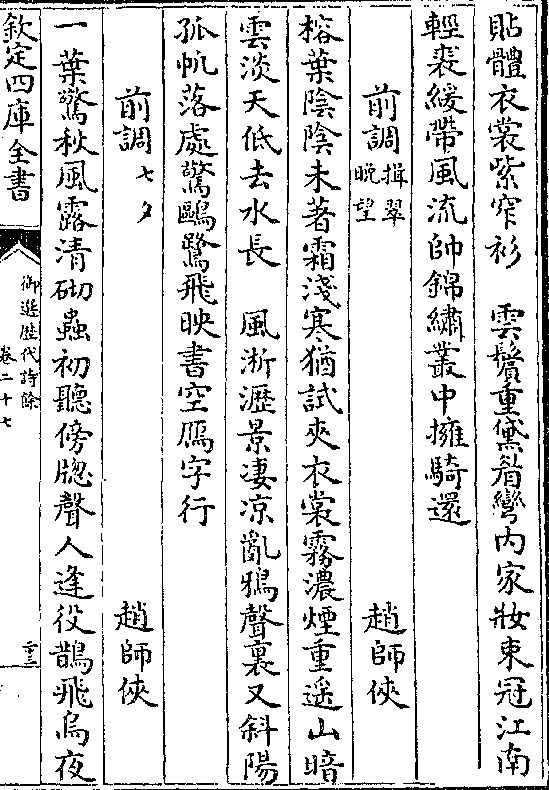 貼體衣裳紫窄衫　雲鬟重黛眉彎内家妝束冠江南
輕裘緩帶風流帥錦繡叢中擁騎還
前調揖翠晚望　趙師俠
榕葉陰陰未著霜淺寒猶試夾衣裳霧濃煙重遥山暗
雲淡天低去水長　風淅瀝景凄凉亂鴉聲裏又斜陽
孤帆落處驚鷗鷺飛映書空鴈字行
前調七夕　趙師俠
一葉驚秋風露清砌蟲初聽傍牎聲人逢役鵲飛烏夜
欽定四庫全書
御選歷代詩餘
卷二十七